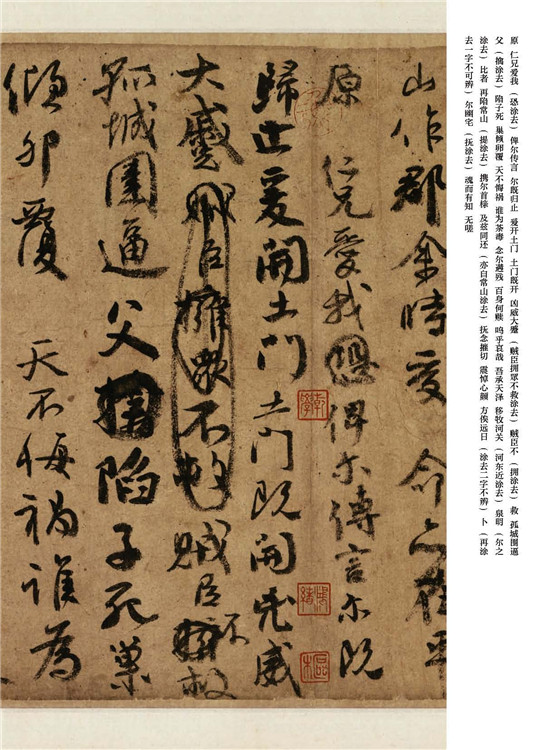 原 仁兄爱我 (恐涂去) 俾尔传言 尔既归止 爰开土门 土门既开 凶威大蹙 (贼臣拥眾不救涂去) 贼臣不 (拥涂去) 救 孤城围逼
父 (擒涂去) 陷子死 巢倾卵覆 天不悔祸 谁为荼毒 念尔遘残 百身何赎 呜乎哀哉 吾承天泽 移牧河关 (河东近涂去) 泉明 (尔之
涂去) 比者 再陷常山 (提涂去) 携尔首榇 及兹同还 (亦自常山涂去) 抚念摧切 震悼心颜 方俟远日 (涂去二字不辨) 卜 (再涂
去一字不可辨) 尔幽宅 (抚涂去) 魂而有知 无嗟
山作郡余時受 命亦在平
原 仁兄愛我恐俾尔傳言尔既
歸止爰開土門土門既開凶威
大蹙賊臣擁衆不救賊臣不擁救
孤城圍逼父擒陷子死巢
傾卵覆 天不悔禍誰為